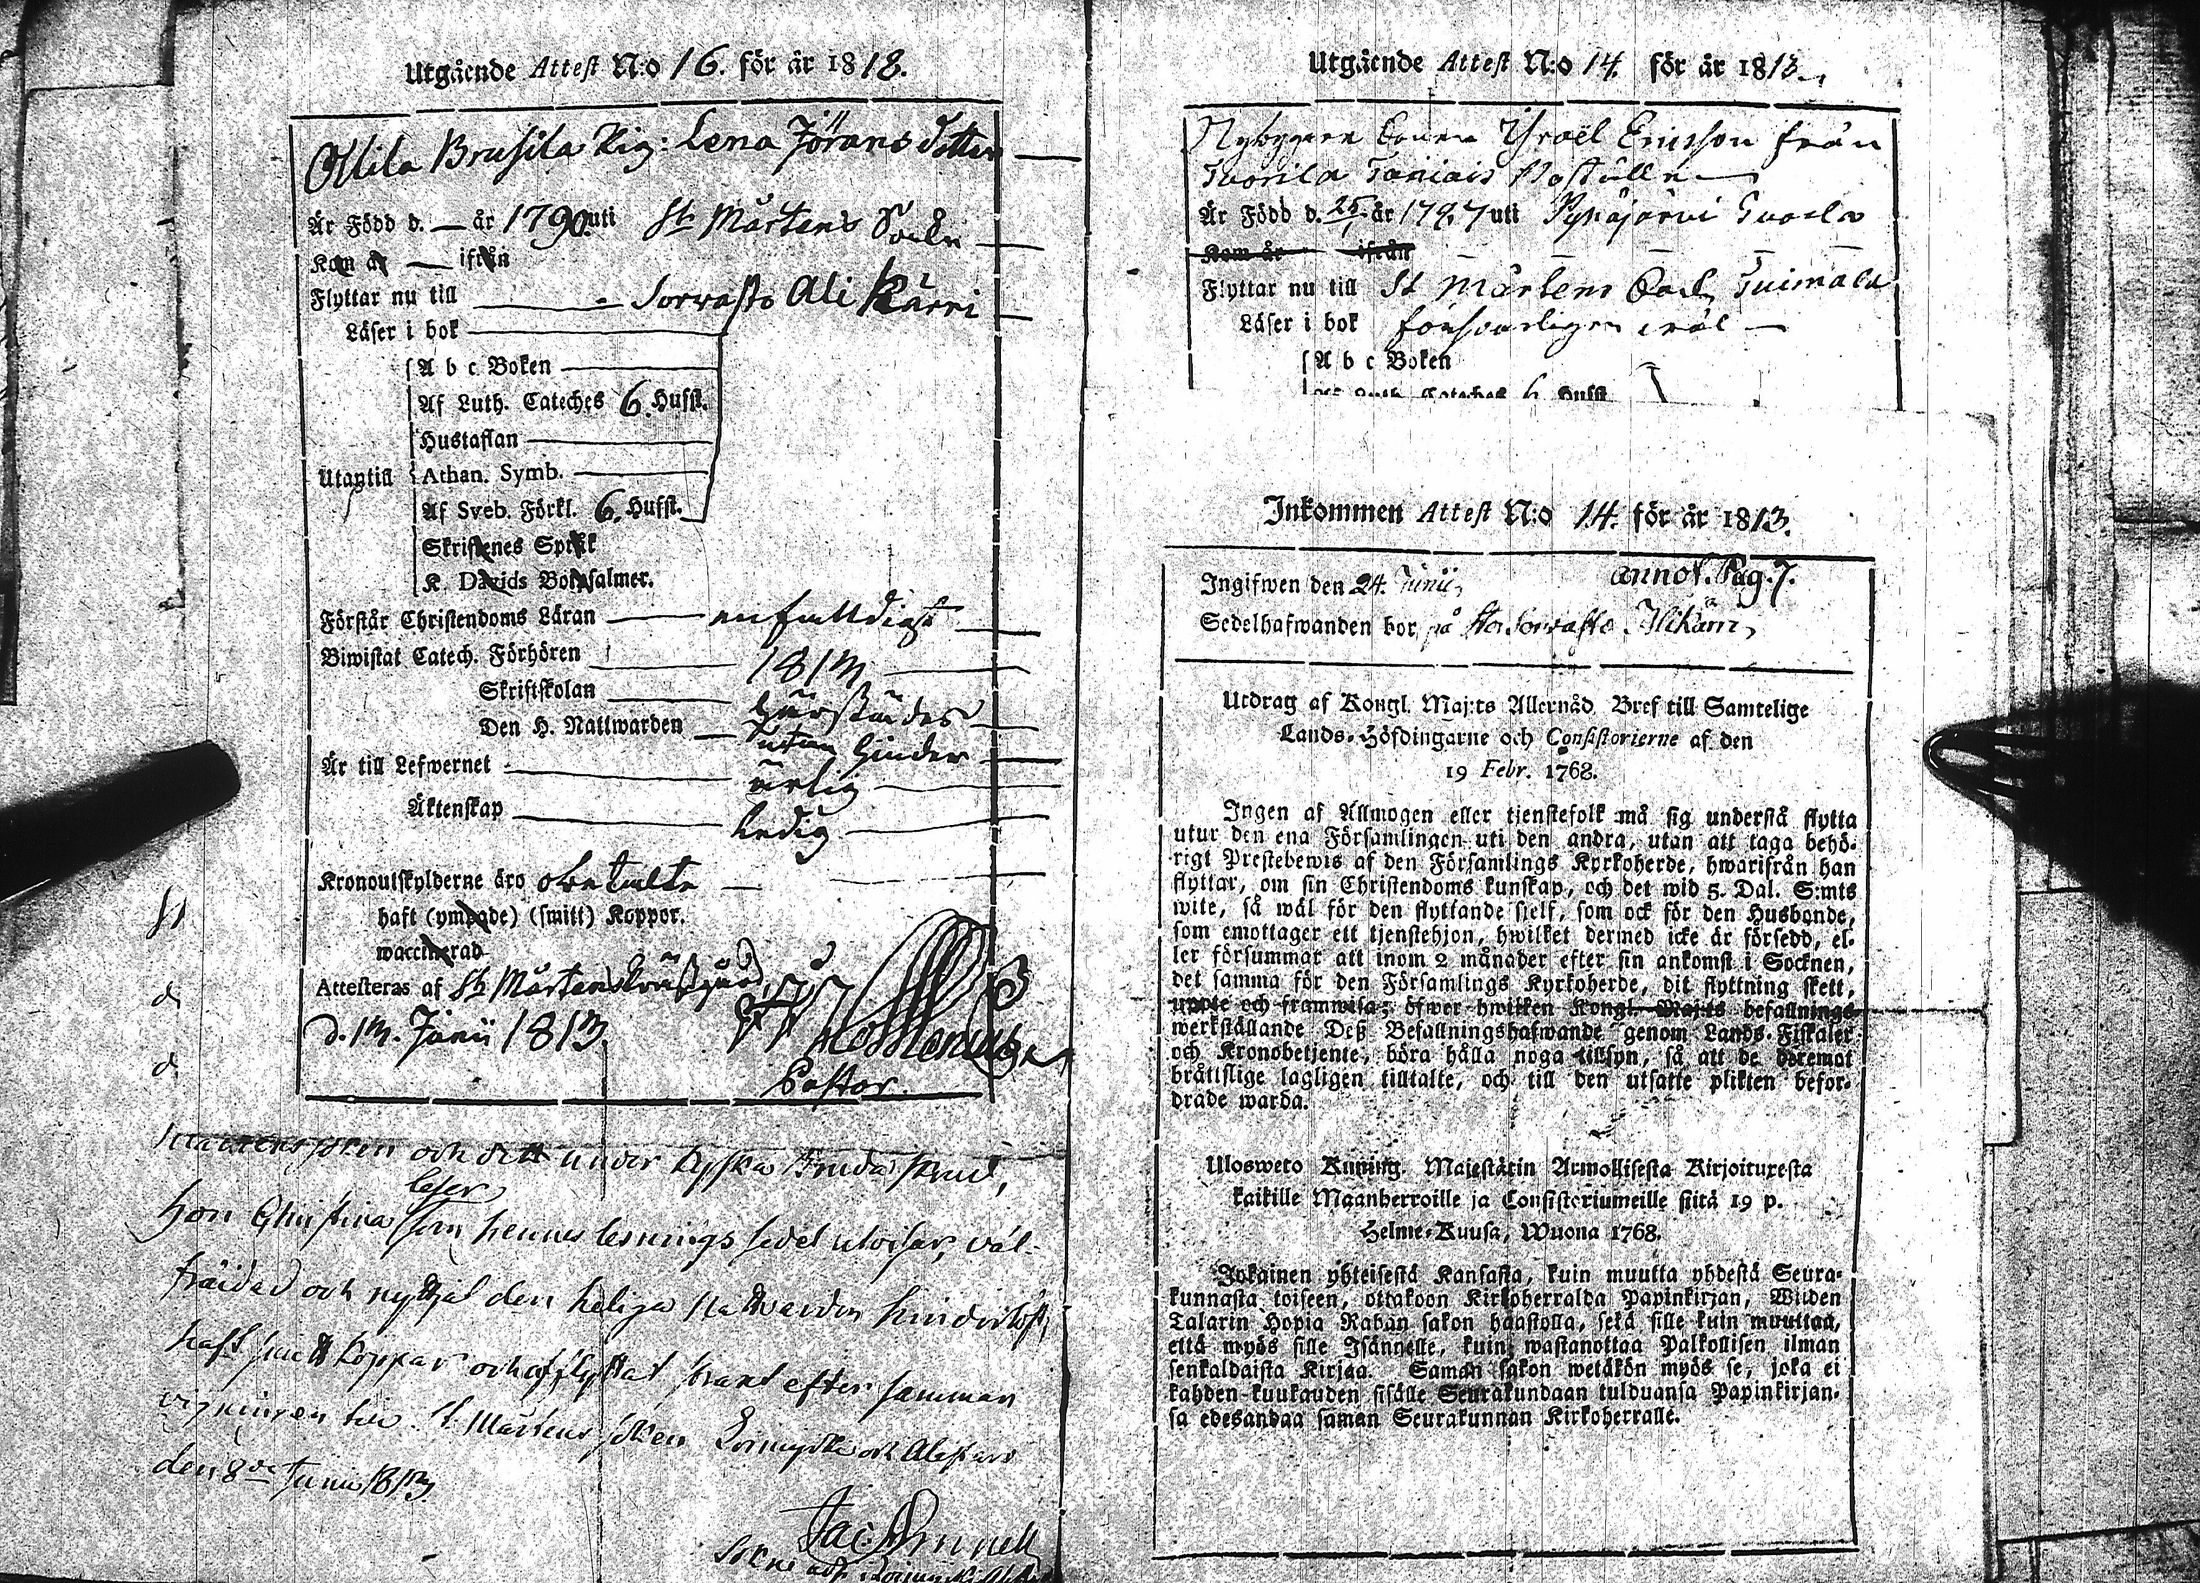 Utgående Attest N:o 16. för år 1818.
Ollila Brusila Pig: Lena Jörans dotter
Är Född d. — år 1790. uti St Mårtens Sockn
Kom år — ifrån
Flyttar nu till — Sorvasto Ali Kärri
Läser i bok
A b c Boken
Af Luth. Cateches 6. Hufst.
Hustaflan
Utantill Athan. Symb.
Af Sveb. Förkl. 6. Hufst.
Skriftenes Språk
K. Davids Botpsalmer.
Förstår Christendoms Läran — enfalldigt
Biwistat Catech. Förhören — 1813
Skriftskolan — härstädes
Den H. Nattwarden — utan hinder
Är till Lefwernet — ärlig
Äktenskap — ledig
Kronoutskylderne äro obetalte
haft (ympade) (smitt) Koppor.
waccinerad
Attesteras af St Mårtens Prästgård
d. 13. Junii 1813.
Pastor
och dett under
läser
hon Christina som hennes läsnings sedel utvisar, väl-
fräidad och nyttjat den heliga Nattvarden hinderlöst,
haft smitt koppor och afflyttat strax efter samman
vigningen hit. St Mårtens soken och
den 8de Junii 1813.
Jac:
Utgående Attest N:o 14. för år 1813.
Nybyggare Israël Ericsson från
Är Född d. 25/ år 1787 uti Pyhäjärvi
Kom år — ifrån
Flyttar nu till St Mårtens
Läser i bok försvarligen väl
A b c Boken
Af Luth. Cateches 6. Hufst
Inkommen Attest N:o 14. för år 1813.
Ingifwen den 24. Junii, annot. Pag. 7.
Sedelhafwanden bor på Stor Sorvasto Alikärri,
Utdrag af Kongl. Maj:ts Allernåd. Bref till Samtelige
Lands-Höfdingarne och Consistorierne af den
19 Febr. 1768.
Ingen af Allmogen eller tjenstefolk må sig understå flytta
utur den ena Församlingen uti den andra, utan att taga behö-
rigt Prestebewis af den Församlings Kyrkoherde, hwarifrån han
flyttar, om sin Christendoms kunskap, och det wid 5. Dal. S:mts
wite, så wäl för den flyttande sielf, som ock för den Husbonde,
som emottager ett tjenstehjon, hwilket dermed icke är försedd, el-
ler försummar att inom 2 månader efter sin ankomst i Socknen,
det samma för den Församlings Kyrkoherde, dit flyttning skett,
uppte och framwisa; öfwer hwilken Kongl. Maj:ts befallnings
werkställande Deß Befallningshafwande genom Lands-Fiskaler
och Kronobetjente, böra hålla noga tillsyn, så att de deremot
bråttslige lagligen tilltalte, och till den utsatte plikten befor-
drade warda.
Ulosweto Kuning. Majestätin Armollisesta Kirjoituxesta
kaikille Maanherroille ja Consistoriumeille siitä 19 p.
Helme-Kuusa, Wuona 1768.
Jokainen yhteisestä Kansasta, kuin muutta yhdestä Seura-
kunnasta toiseen, ottakoon Kirkoherralda Papinkirjan, Wiiden
Talarin Hopia Rahan sakon haastolla, sekä sille kuin muuttaa,
että myös sille Isännelle, kuin wastanottaa Palkollisen ilman
senkaldaista Kirjaa. Saman sakon wetäkön myös se, joka ei
kahden kuukauden sisälle Seurakundaan tulduansa Papinkirjan-
sa edesandaa saman Seurakunnan Kirkoherralle.